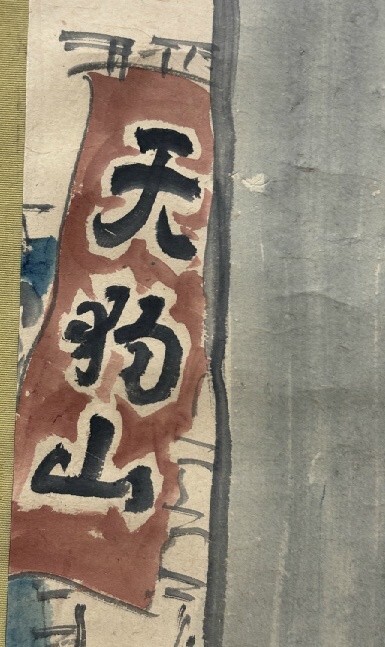 天狗山